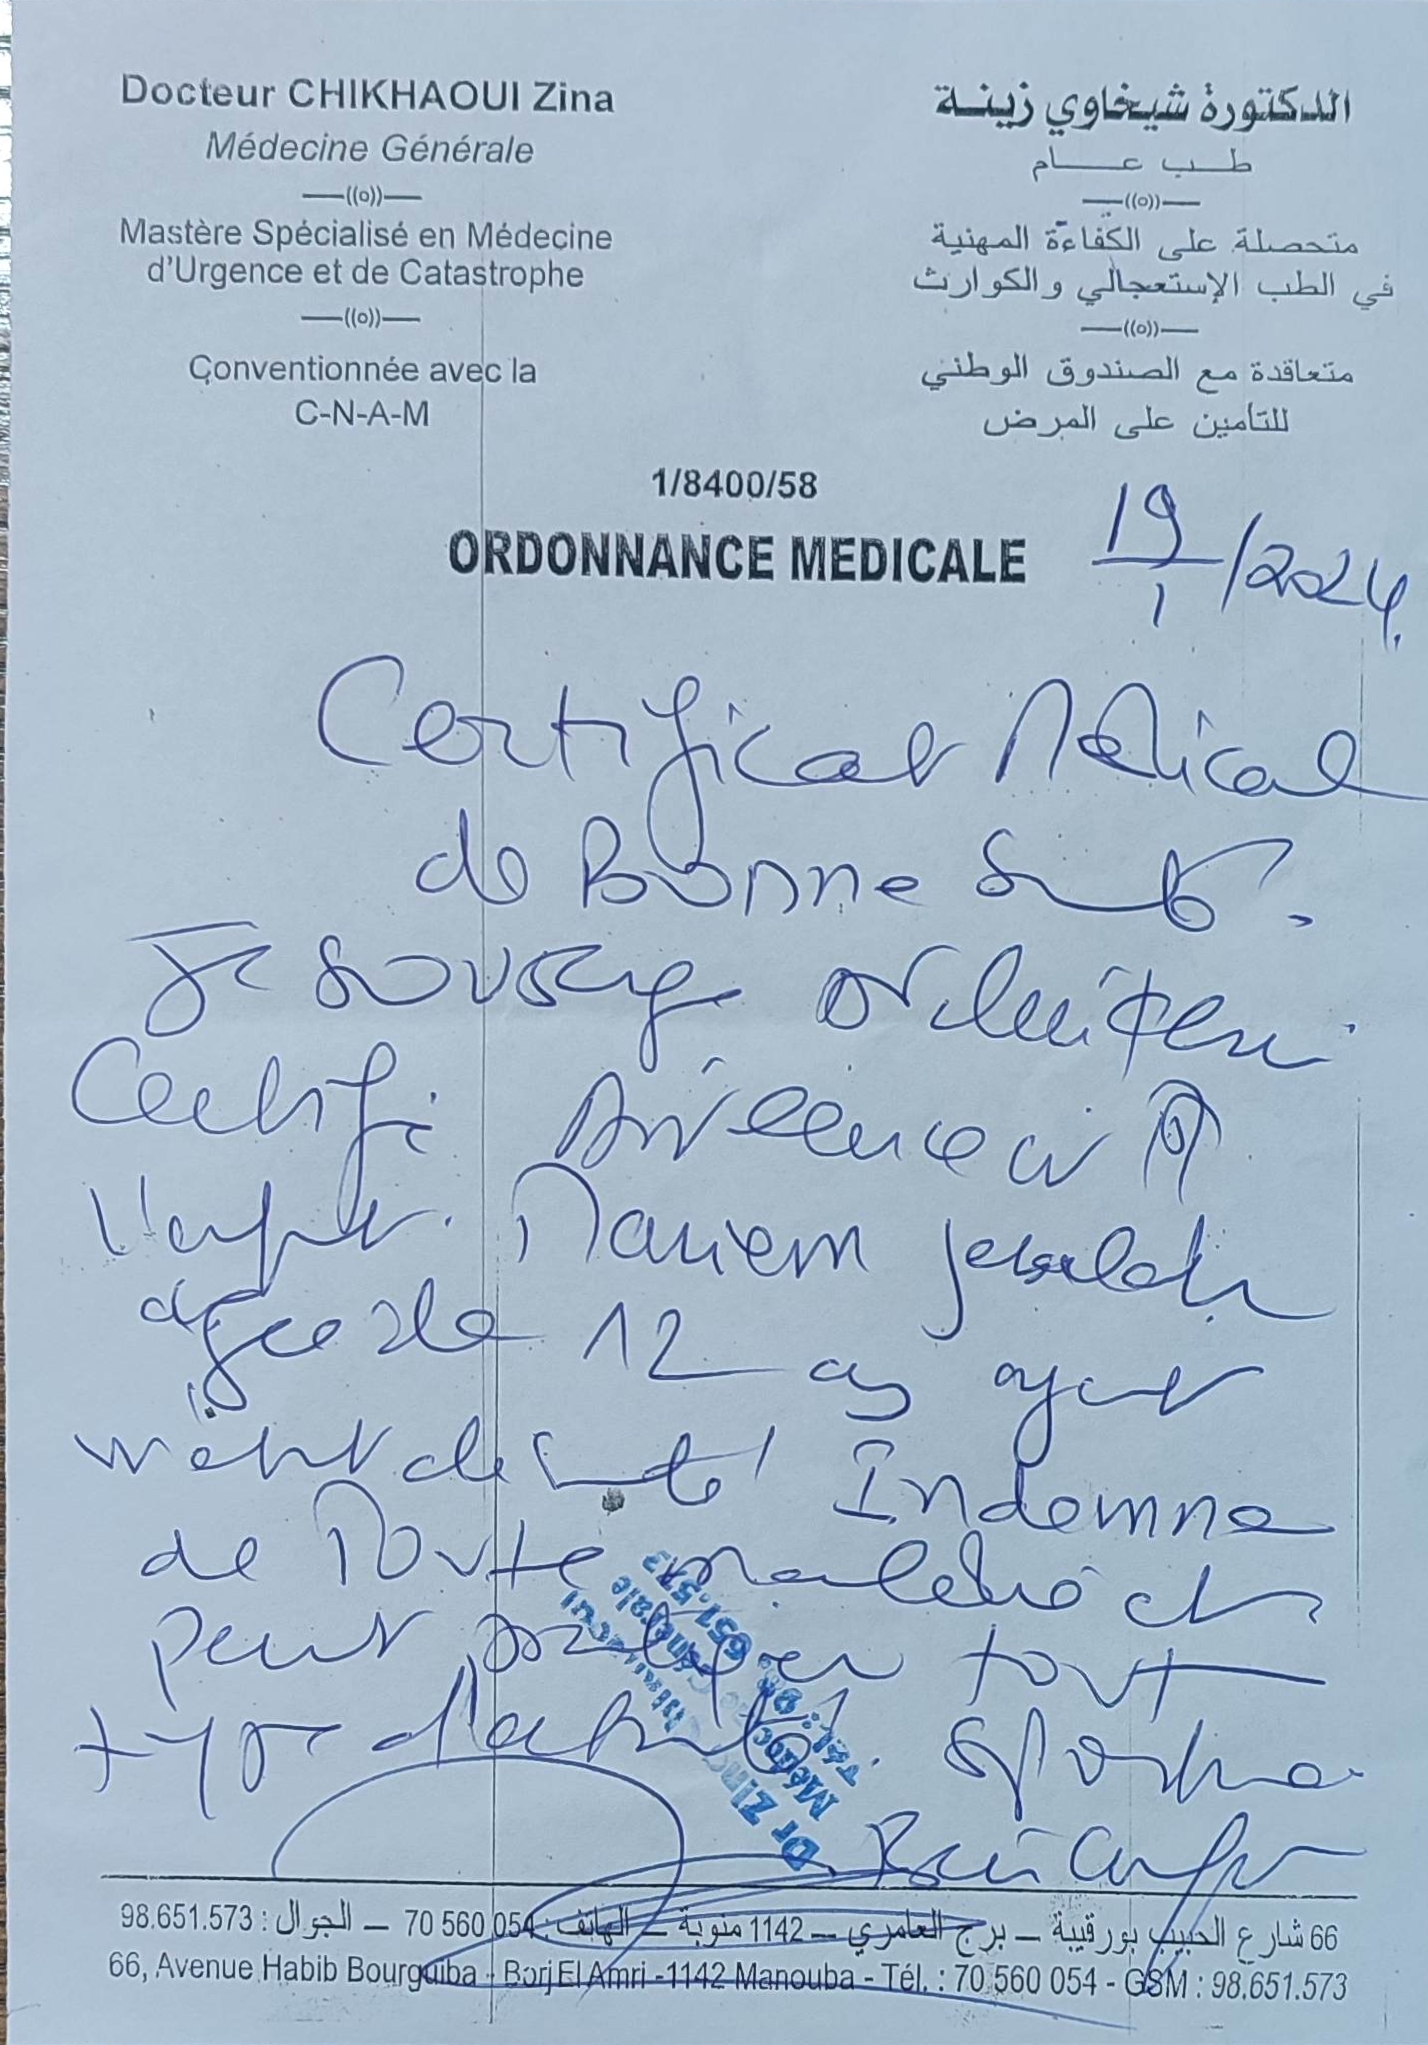 Docteur CHIKHAOUI Zina
Médecine Générale
Mastère Spécialisé en Médecine
d'Urgence et de Catastrophe
Conventionnée avec la
C-N-A-M
الدكتورة شيخاوي زينة
طب عام
متحصلة على الكفاءة المهنية
في الطب الإستعجالي والكوارث
متعاقدة مع الصندوق الوطني
للتأمين على المرض
1/8400/58
ORDONNANCE MEDICALE
19/1/2024
Certificat Médical
de Bonne Santé.
Je soussigné
Certifie
l'enfant Mariem
agée de 12 ans ayant
santé Indemne
de Toute maladie et
peut pratiquer tout
type d'activité sportive
Dr Zina Chikhaoui
Médecine Générale
Tél.: 98.651.573
66 شارع الحبيب بورقيبة – برج العامري – 1142 منوبة – الهاتف : 054 560 70 – الجوال : 98.651.573
66, Avenue Habib Bourguiba - Borj El Amri -1142 Manouba - Tél. : 70 560 054 - GSM : 98.651.573